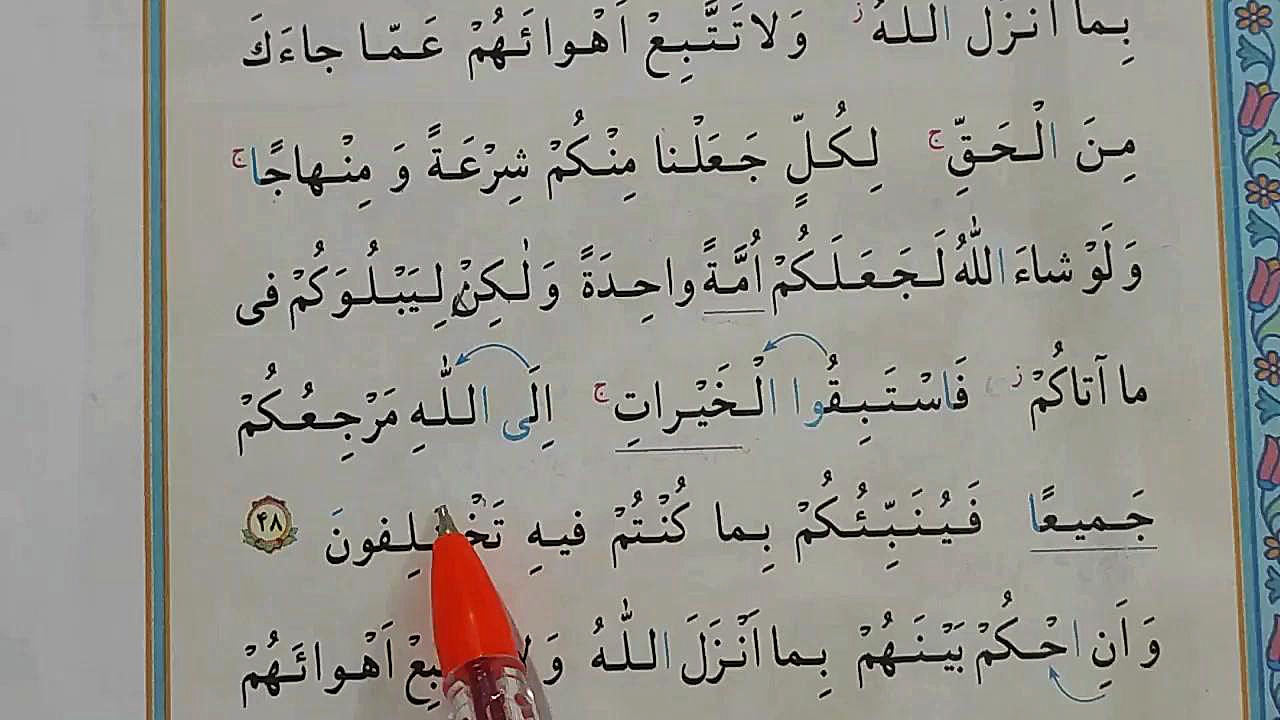 بِما اَنْزَلَ اللهُ ز وَلا تَتَّبِعْ اَهْوائَهُمْ عَمّا جاءَكَ
مِنَ الْحَقِّ ج لِكُلٍّ جَعَلْنا مِنْكُمْ شِرْعَةً وَ مِنْهاجًا ج
وَلَوْ شاءَ اللهُ لَجَعَلَكُمْ اُمَّةً واحِدَةً وَلٰكِنْ لِيَبْلُوَكُمْ فى
ما آتاكُمْ ز فَاسْتَبِقُوا الْخَيْراتِ ج اِلَى اللّٰهِ مَرْجِعُكُمْ
جَميعًا فَيُنَبِّئُكُمْ بِما كُنْتُمْ فيهِ ۴۸
وَ اَنِ احْكُمْ بَيْنَهُمْ بِما اَنْزَلَ اللّٰهُ اَهْوائَهُمْ